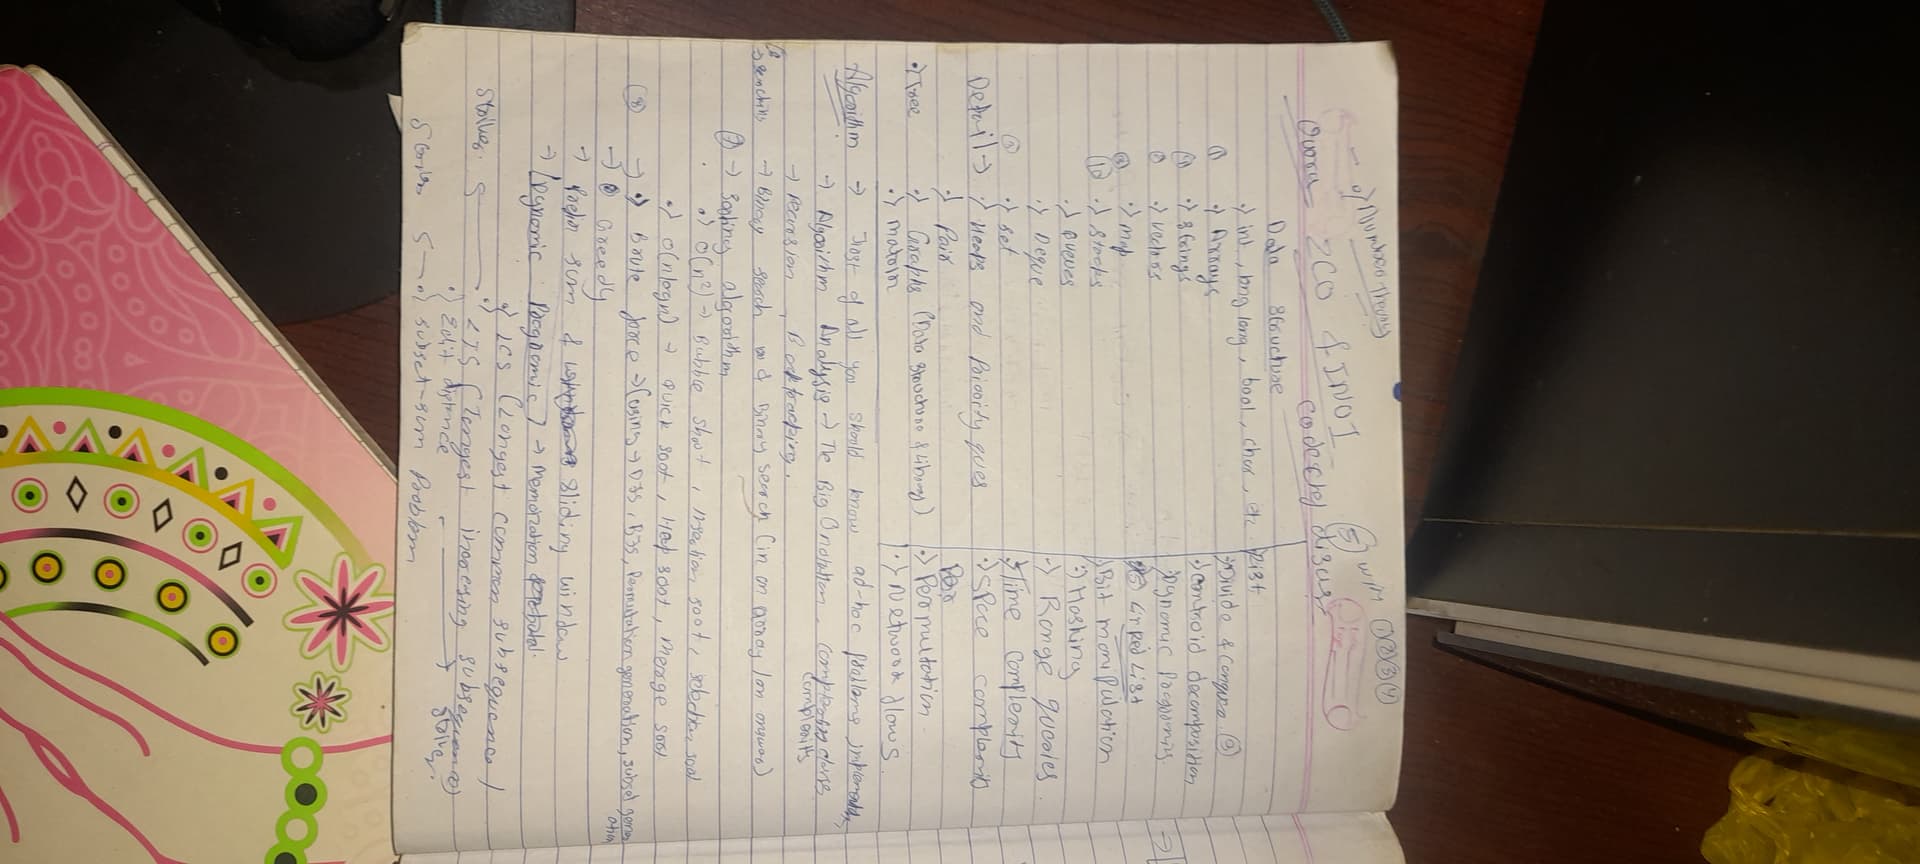 → Number theory
ZCO & INOI
Quora
Codechef disuss
5 w/m
1 2 3 4
Data structure
int, long long, bool, char, etc.
① Arrays
④ strings
vectors
map
stacks
queues
Deque
⑤ set
Detail → Heaps and Priority ques
Pair
• Tree Graphs (Data structure & library)
matrix
List
Divide & Conquer
centroid decomposition
Dynamic Programis
Linked List
Bit manipulation
Hashing
Range queries
Time complexity
Space complexity
Permutation
Network flows
Algorithm → first of all you should know ad-hoc problems,
→ Algorithm Analysis → The Big O notation, complexity
→ recursion, Backtracking.
searching → Binary search and Binary search (in on array on answer)
⑦ → Sorting algorithm
O(n2) → Bubble short, insertion sort, selection sort
O(nlogn) → quick sort, Heap sort, merge sort
⑧ → Brute force → (using → DFS, BFS, Permutation generation, subset generation
→ Greedy
→ Prefix sum & sliding window
→ [Dynamic Programic] → memorization
LCS (Longest common subsequence)
Strives S LIS (Longest increasing subsequence)
Edit distance
Striver S subset-sum problem
Striver